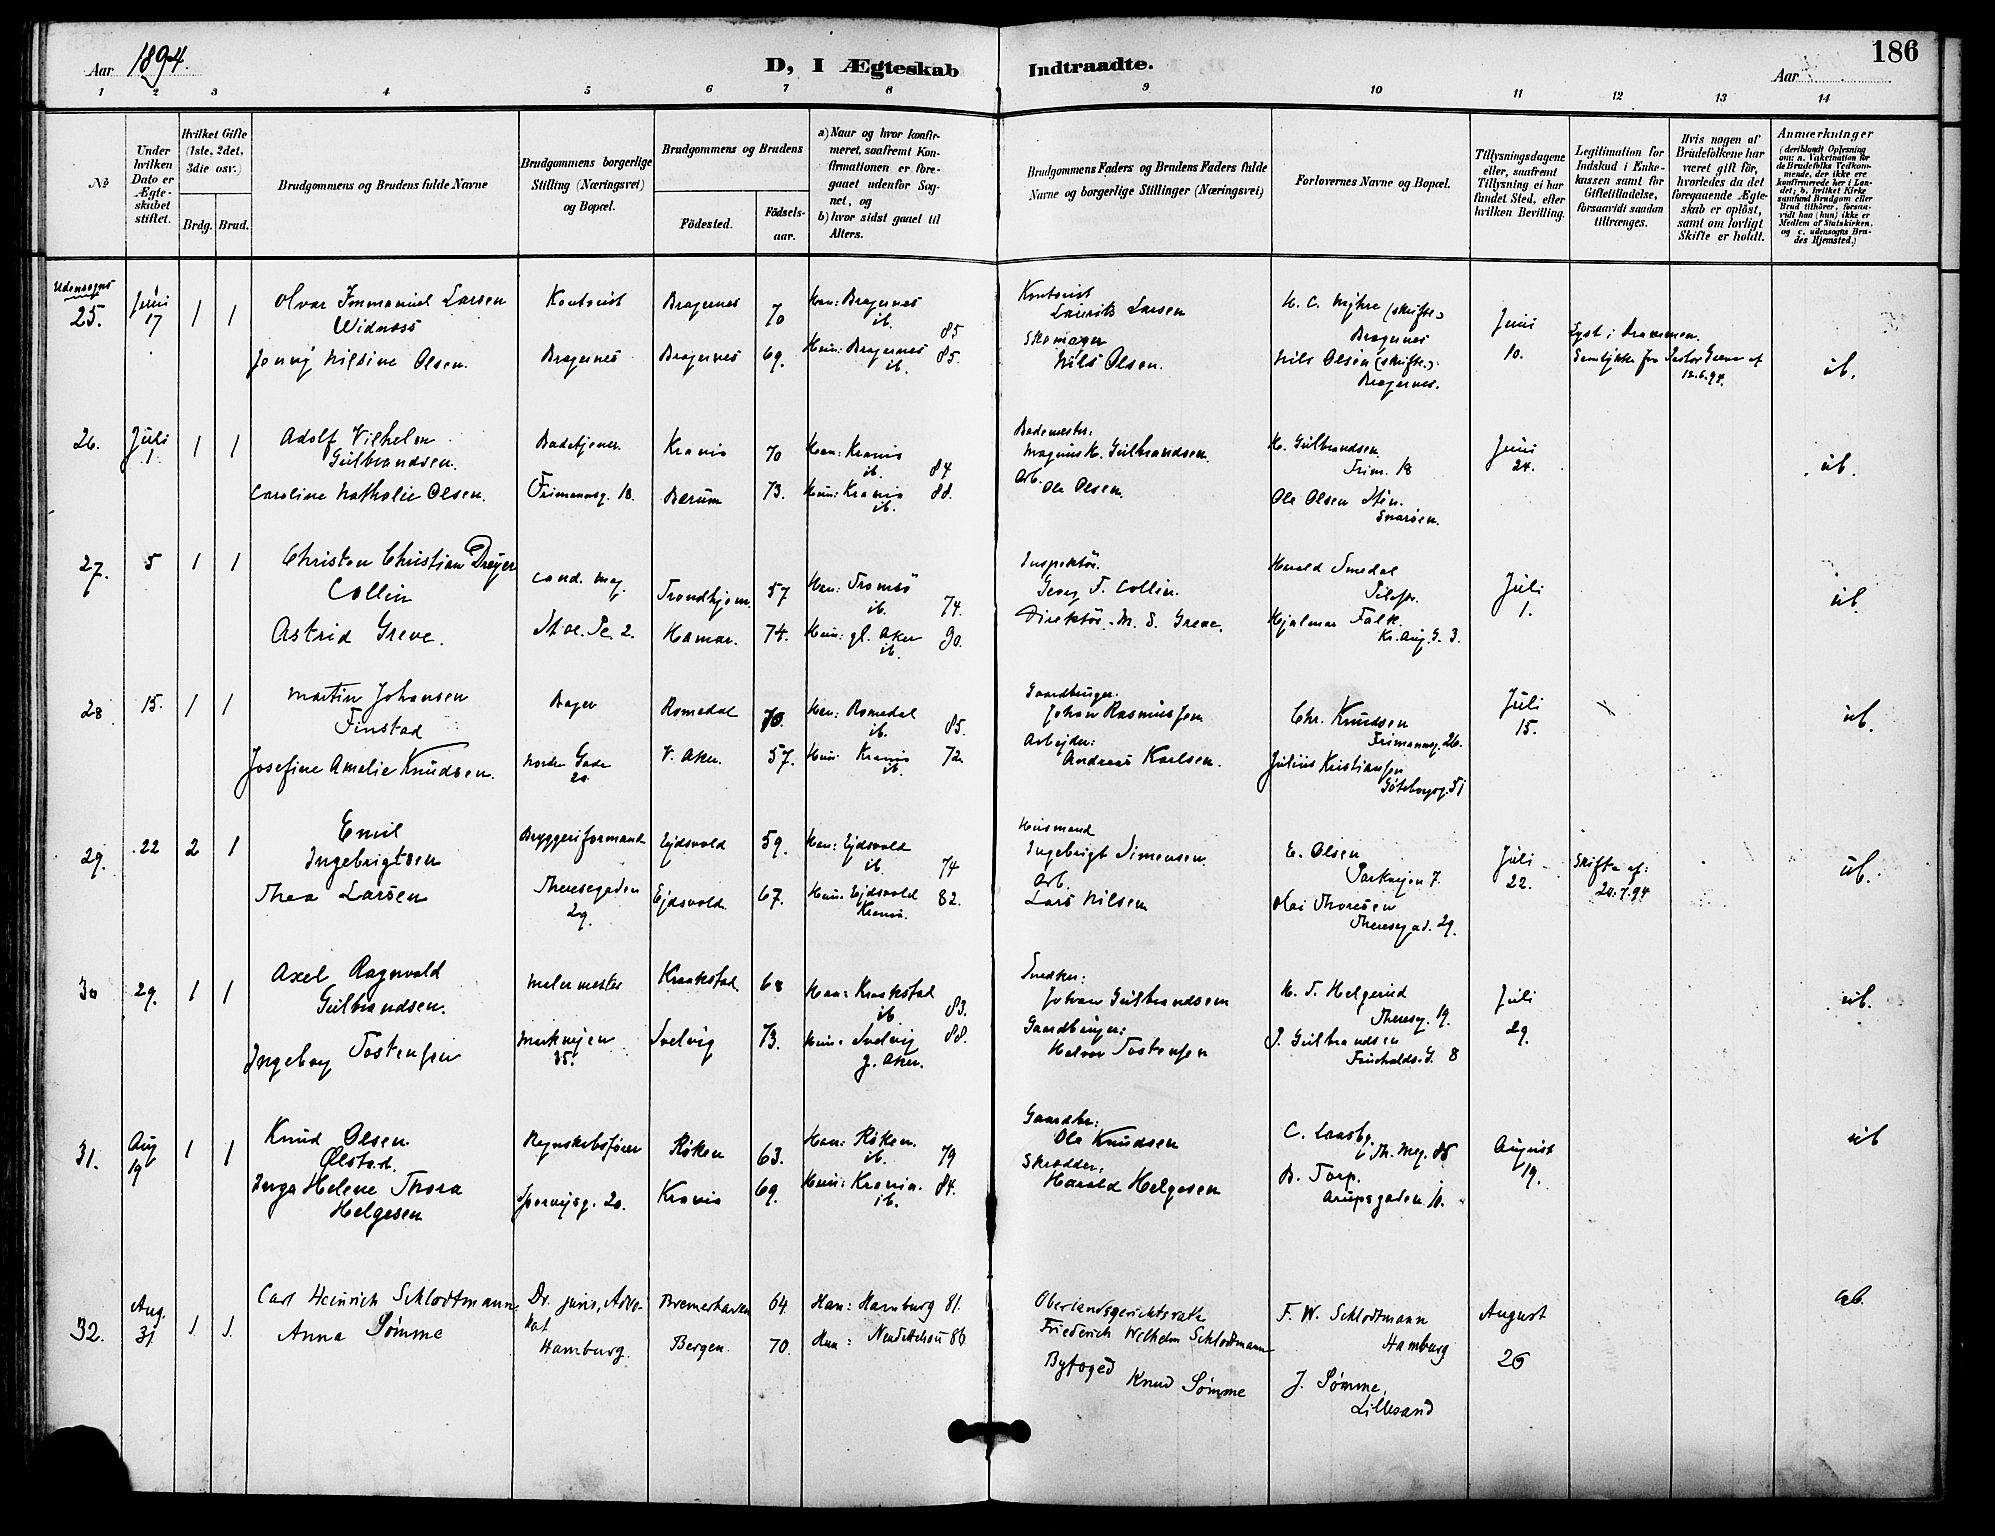 Aar 1894.
D, I Ægteskab Indtraadte.
Aar
186
1 2 3 4 5 6 7 8 9 10 11 12 13 14
No
Under hvilken Dato er Ægteskabet stiftet.
Hvilket Gifte (1ste, 2det, 3die osv.)
Brdg. Brud.
Brudgommens og Brudens fulde Navne
Brudgommens borgerlige Stilling (Næringsvei) og Bopæl.
Brudgommens og Brudens
Födested.
Födselsaar.
a) Naar og hvor konfirmeret, saafremt Konfirmationen er foregaaet udenfor Sognet, og
b) hvor sidst gaaet til Alters.
Brudgommens Faders og Brudens Faders fulde Navne og borgerlige Stillinger (Næringsvei)
Forlovernes Navne og Bopæl.
Tillysningsdagene eller, saafremt Tillysning ei har fundet Sted, efter hvilken Bevilling.
Legitimation for Indskud i Enkekassen samt for Giftetilladelse, forsaavidt saadan tiltrænges.
Hvis nogen af Brudefolkene har været gift för, hvorledes da det foregaaende Ægteskab er oplöst, samt om lovligt Skifte er holdt.
Anmærkninger (deriblandt Oplysning om: a. Vakcination for de Brudefolks Vedkommende, der ikke ere konfirmerede her i Landet; b. hvilket Kirkesamfund Brudgom eller Brud tilhörer, forsaavidt han (hun) ikke er Medlem af Statskirken, og c. udensogns Brudes Hjemsted.)
Udensogns
25. Juni 17 1 1 Olvar Immanuel Larsen Kontorist Bragernes 70 Han: Bragernes ib. 85 Kontorist Laurits Larsen H. C. Myhre (skriftl.) Bragernes Juni 10. Lyst i Drammen.
Widness
Jenny Nilsine Olsen. Bragernes Bragernes 69. Hun: Bragernes ib. 85. Skomager Nils Olsen. Nils Olsen (skriftl.) Bragernes. Samtykke fra Pastor Greve af 12.6.94. ib.
26. Juli 1. 1 1 Adolf Vilhelm Gulbrandsen. Badetjener Krania 70 Han: Krania ib. 84 Bademester: Magnus H. Gulbrandsen. H. Gulbrandsen Frim. 18 Juni 24. ib.
Caroline Nathalie Olsen. Frimannsg. 18. Bærum 73. Hun: Krania ib. 88. Arb. Ole Olsen. Ole Olsen Snarøen.
27. 5 1 1 Christen Christian Dreyer Collin cand. mag. Trondhjem. 57 Han: Tromsö ib. 74. Inspektör. Georg F. Collin. Harald Smedal Juli 1. ib.
Astrid Greve. Hamar. 74. Hun: gl. Aker ib. 90. Direktör. M. S. Greve. Hjalmar Falk. Kr. Aug. G. 3.
28 15. 1 1 Martin Johansen Finstad Bager Romedal 70. Han: Romedal ib. 85. Gaardbruger. Johan Rasmussen Chr. Knudsen Frimannsg. 26. Juli 15. ib.
Josefine Amelie Knudsen. Nordre Gade 20 V. Aker. 57. Hun: Krania ib. 72 Arbejder: Andreas Karlsen. Julius Kristiansen Göteborgg. 51
29. 22 2 1 Emil Ingebrigtsen Bryggeriformand Ejdsvold 59. Han: Ejdsvold ib. 74 Husmand Ingebrigt Simensen. E. Olsen Parkvejen 7. Juli 22. Skifte af: 20.7.94 ib.
Thea Larsen Theresegaden 29. Ejdsvold. 67. Hun: Ejdsvold Krania. 82. Arb. Lars Nilsen Thoresen Theresegad. 29.
30 29. 1 1 Axel Ragnvald Gulbrandsen. Malermester Kraakstad. 68 Han: Kraakstad ib. 83. Snedker: Johan Gulbrandsen H. T. Helgerud Thereseg. 19. Juli 29. ib.
Ingeborg Tostensen Markvejen 35. Svelvig 73. Hun: Svelvig g. Aker. 88. Gaardbruger: Halvor Tostensen J. Gulbrandsen Fructolds. G. 8
31. Aug 19 1 1 Knud Olsen Ølstad. Regnskabsfører Røken 63. Han: Røken. ib. 79 Gaardbr: Ole Knudsen C. Laasby Th. Mg. 85 August 19. ib
Inga Helene Thora Helgesen Sporvejsg. 20. Krania 69. Hun: Krania. ib. 84. Skrædder, Harald Helgesen B. Torp. Arupsgaden 10.
32. Aug. 31 1. 1. Carl Heinrich Schlodtmann Dr. juris, Advokat Bremerhaven 64. Han: Hamburg 81. Oberlandsgerichtsrath Friederich Wilhelm Schlodtmann F. W. Schlodtmann Hamburg August 26 ab.
Anna Sømme Hamburg. Bergen. 70. Hun: 86 Byfoged Knud Sømme J. Sømme, Lillesand